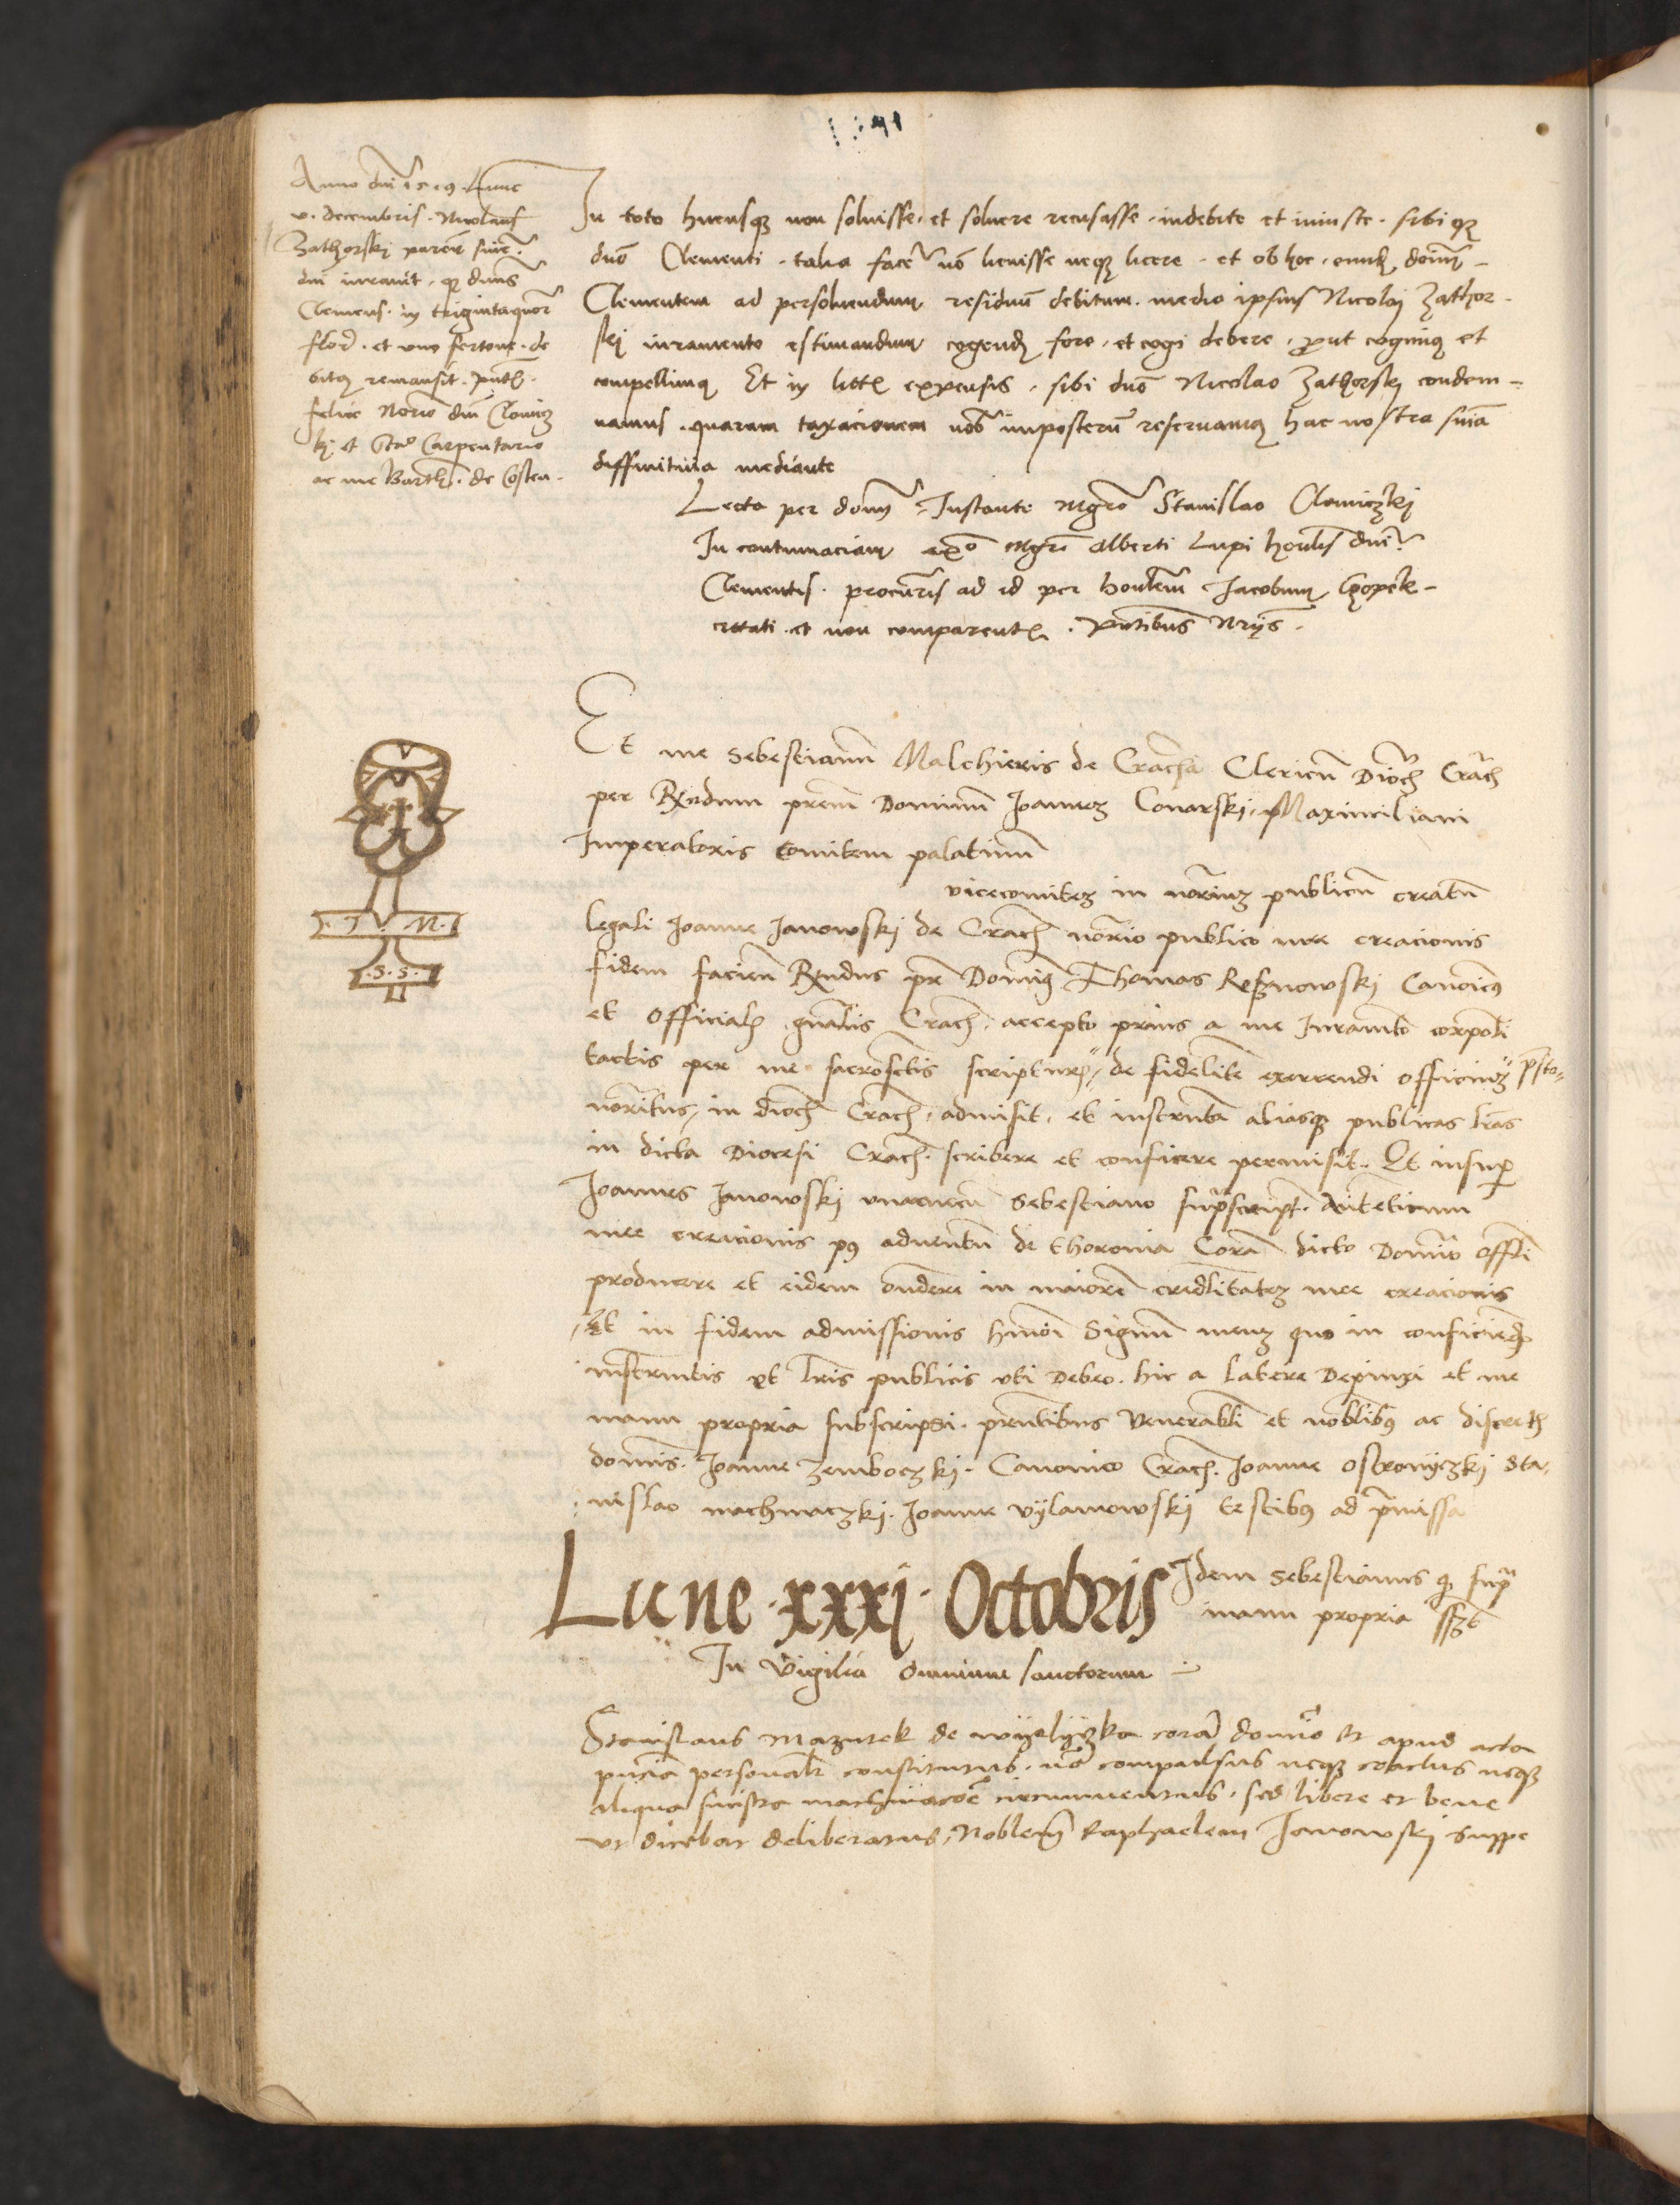 Anno dni 1519 Lune
v. decembris. Nicolaus
Zathorski parens sine
dni iuravit. q dnus
Clemens. in trigintaquor
flor. et uno fertone. de
bitor remansit. pntb.
felice Norio dni Clowicz
ki et Sta Carpentario
ac me Barth. de Costen.
In toto hucusq non solvisse. et solvere recusasse. indebite et iniuste. sibi q
dno Clementi. talia facere no licuisse neq licere. et ob hoc. eund domi
Clementem ad persolvendum residuu debitum. medio ipsius Nicolai Zathor
ski iuramento estimandum cogend fore. et cogi debere. prout cogimus et
compellimus Et in litis expensis. sibi dno Nicolao Zathorski condem
namus. quarum taxacionem nob imposteru reservamus hac nostra snia
diffinitiva mediante
Lecta per domi Instante Mgro Stanislao Clowiczki
In contumaciam Mgri Alberti Lupi dni
Clementis. procuris ad id per honlem Jacobum
citati. et non comparentis. Pntibus Nriis.
Et me Sebestianu Malchieris de Cracia Clericu Dioc Crac
per Rndum prem Dominu Joannez Conarski. Maximiliani
Imperatoris Comitem palatinu
vicecomitez in noriuz publicu creatu
legali Joanne Janowski de Crac norio publico mee creacionis
fidem facien Rndus pr Domin Thomas Roznowski Canoicus
et Officialis gnalis Crac. accepto prius a me Juramto corpoli
tactis per me sacrosctis scripturis, de fidelite exercendi officiuz psto
noritus, in dioc Crac. admisit. et instruta aliasq publicas lras
in dicta Diocesi Crac. scribere et conficere permisit. Et insup
Joannes Janowski unacu Sebestiano suprascript. Auteticum
mee creacionis post adventu de thoronia Cora dicto Domino offli
producere et eidem ondere in maiore credlitatez mee creacionis
Et in fidem admissionis hmoi Signu meuz quo in conficiend
instrutis et lris publicis uti Debeo. hic a latere Depinxi et me
manu propria subscripsi. prntibus Venerabli et noblibus ac discretis
domis. Joanne Zemboczki. Canonico Crac. Joanne Ostrowyczki Sta
nislao machnaczki. Joanne vylamowski testibus ad pmissa
.J. M.
.S.S.
Lune .xxxj. Octobris
Idem Sebestianus q supra
manu propria sszt
In Vigilia Omnium sanctorum
Stanislaus Mazurek de wyelyczka cora domino et apud acta
pncia personalr constitutus. no compulsus neq coactus neq
aliqua sinistra machinacoe circumventus. sed libere et bene
ut dicebat deliberatus, Noblem Raphaelem Janowski suppe